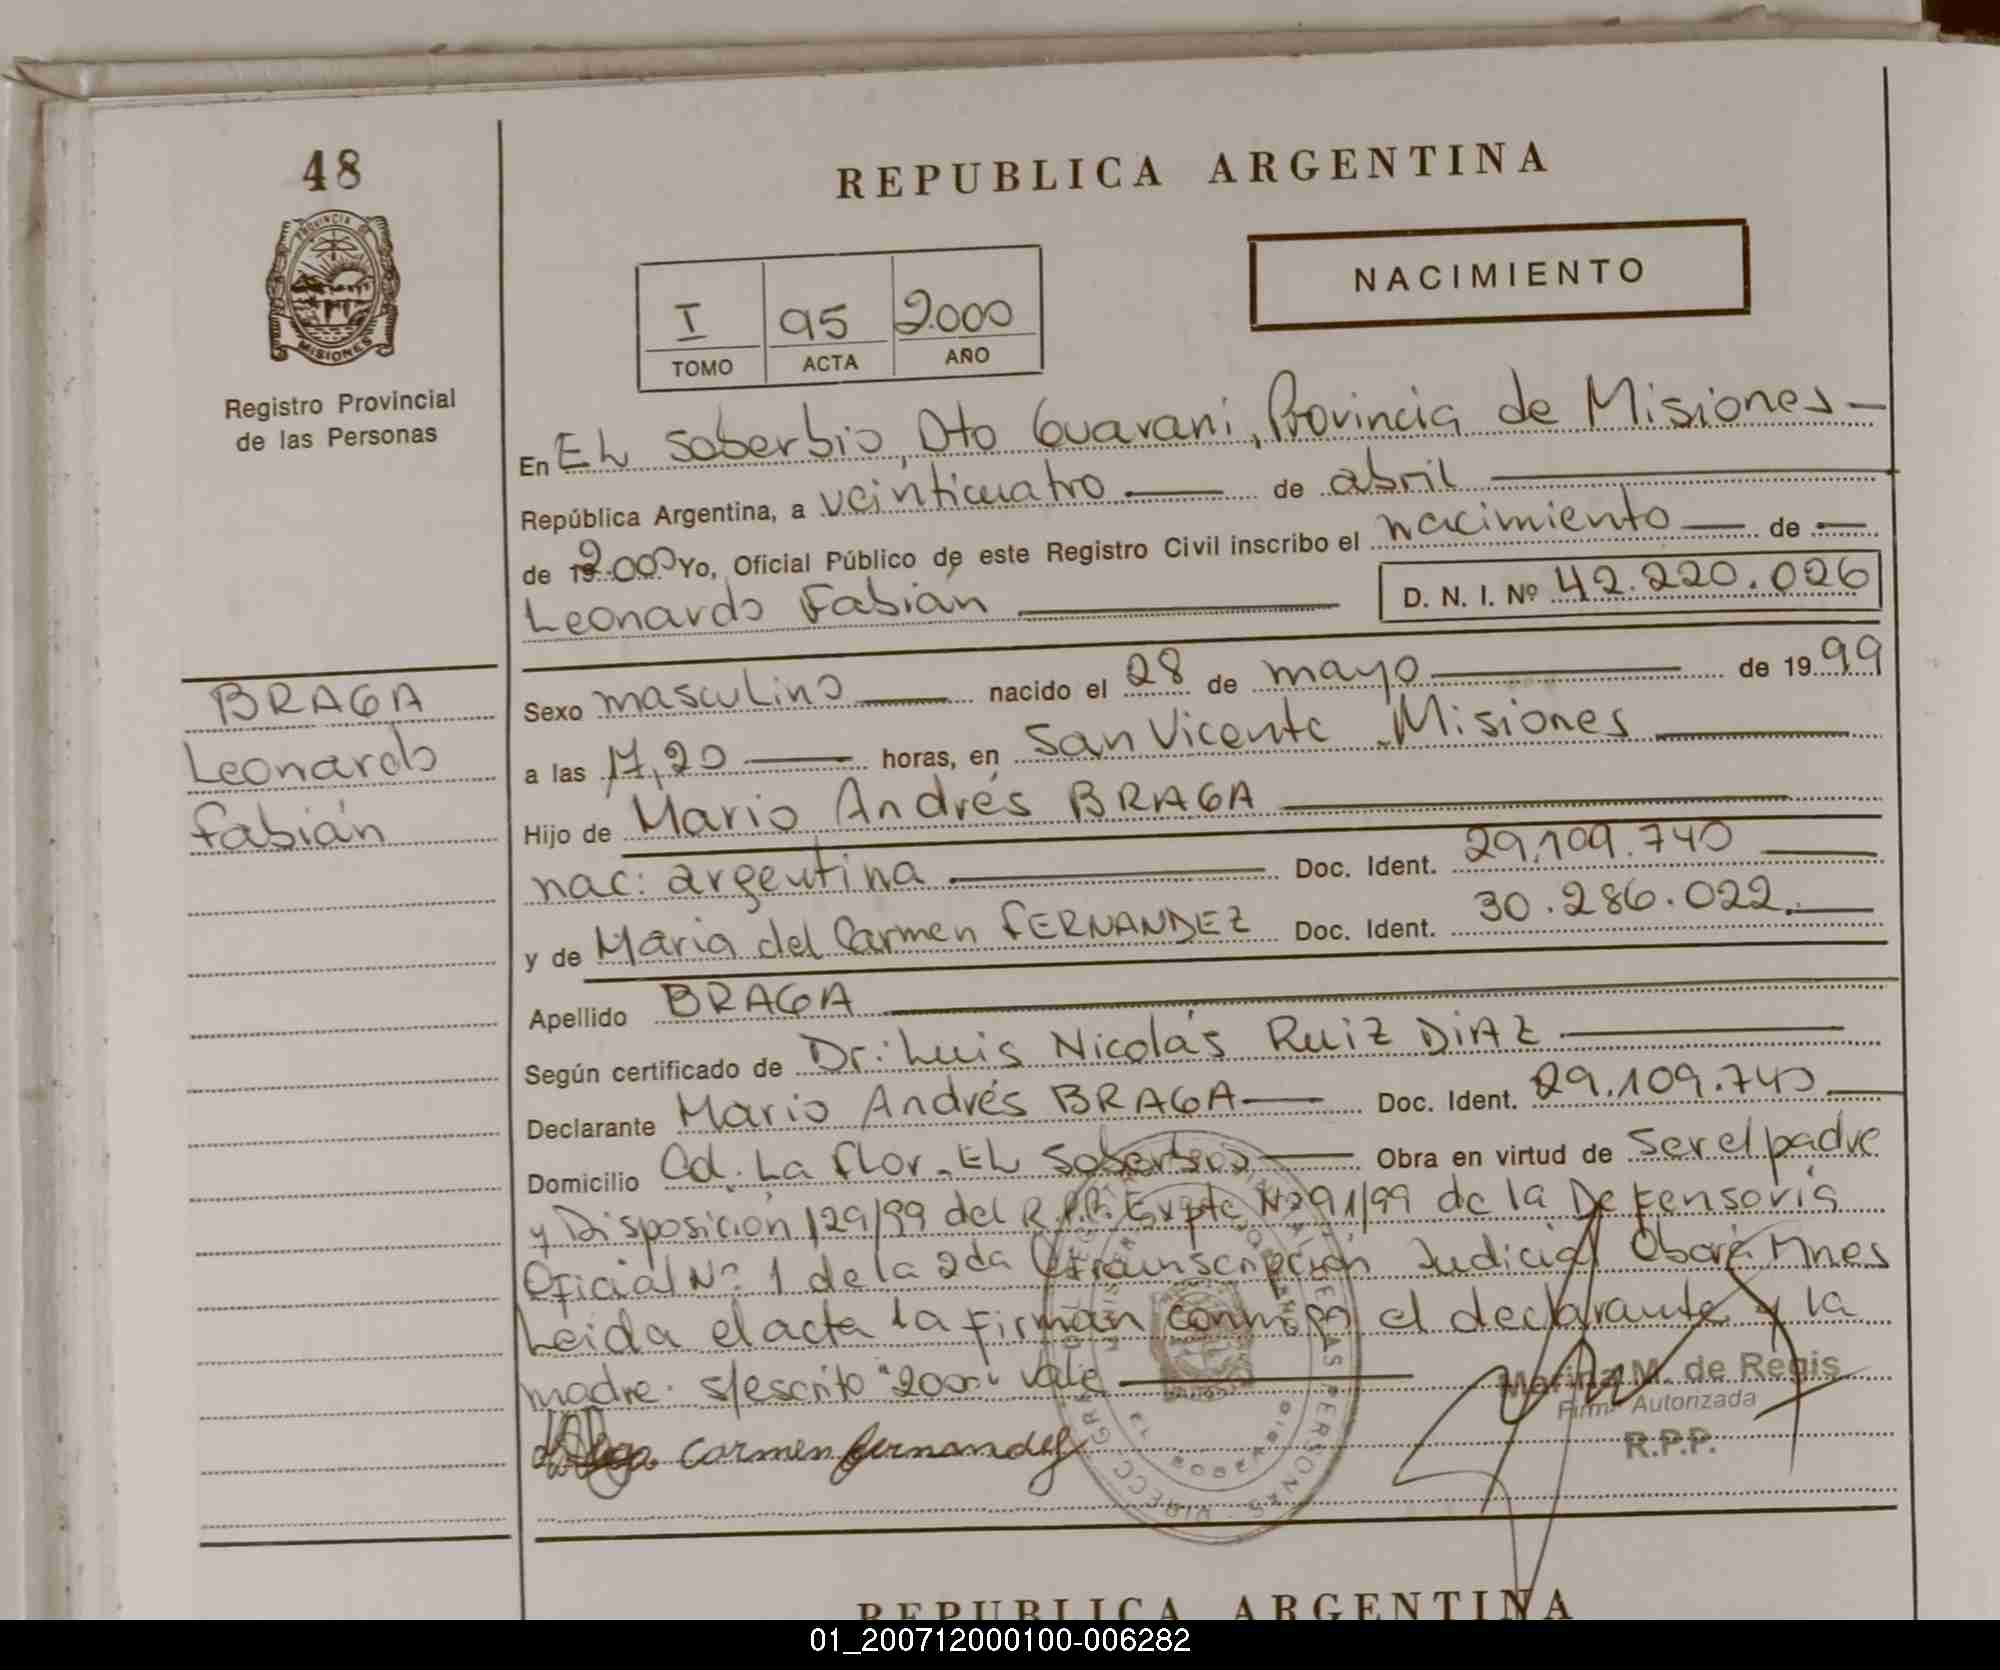 48
REPUBLICA ARGENTINA
PROVINCIA DE
MISIONES
Registro Provincial
de las Personas
NACIMIENTO
I 95 2000
TOMO ACTA AÑO
En EL Soberbio, Dto Guaraní, Provincia de Misiones
República Argentina, a veinticuatro de abril
de 2000 Yo, Oficial Público de este Registro Civil inscribo el nacimiento de
Leonardo Fabián D. N. I. Nº 42.220.026
BRAGA
Leonardo
Fabián
Sexo masculino nacido el 28 de mayo de 1999
a las 17,20 horas, en San Vicente Misiones
Hijo de Mario Andrés BRAGA
nac: argentina Doc. Ident. 29.109.740
y de María del Carmen FERNANDEZ Doc. Ident. 30.286.022
Apellido BRAGA
Según certificado de Dr: Luis Nicolás RUIZ DIAZ
Declarante Mario Andrés BRAGA Doc. Ident. 29.109.740
Domicilio Cd. La Flor - EL Soberbio Obra en virtud de ser el padre
y Disposición 129/99 del R.P.P. Expte Nº 91/99 de la Defensoría
Oficial Nº 1 de la 2da Circunscripción Judicial Oberá Mnes
Leida el acta la firman conmigo el declarante y la
madre. s/escrito "2000" vale
Carmen fernandez
Marina M. de Regis
Firma Autorizada
R.P.P.
REPUBLICA ARGENTINA
01_200712000100-006282